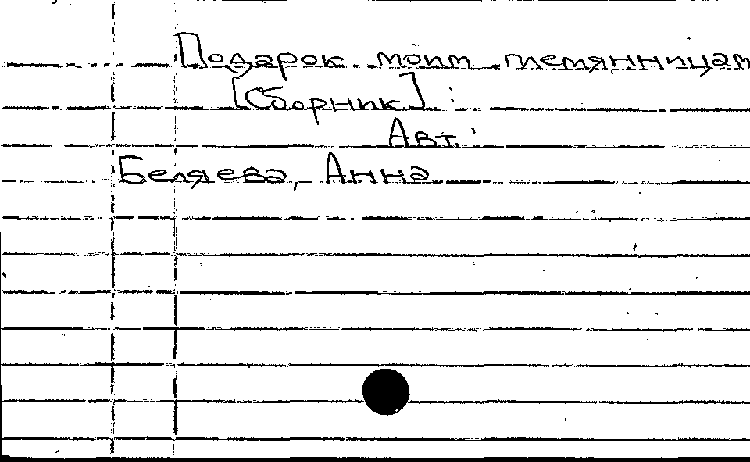 Подарок моим племянницам
[Сборник] :
Авт.:
Беляева, Анна